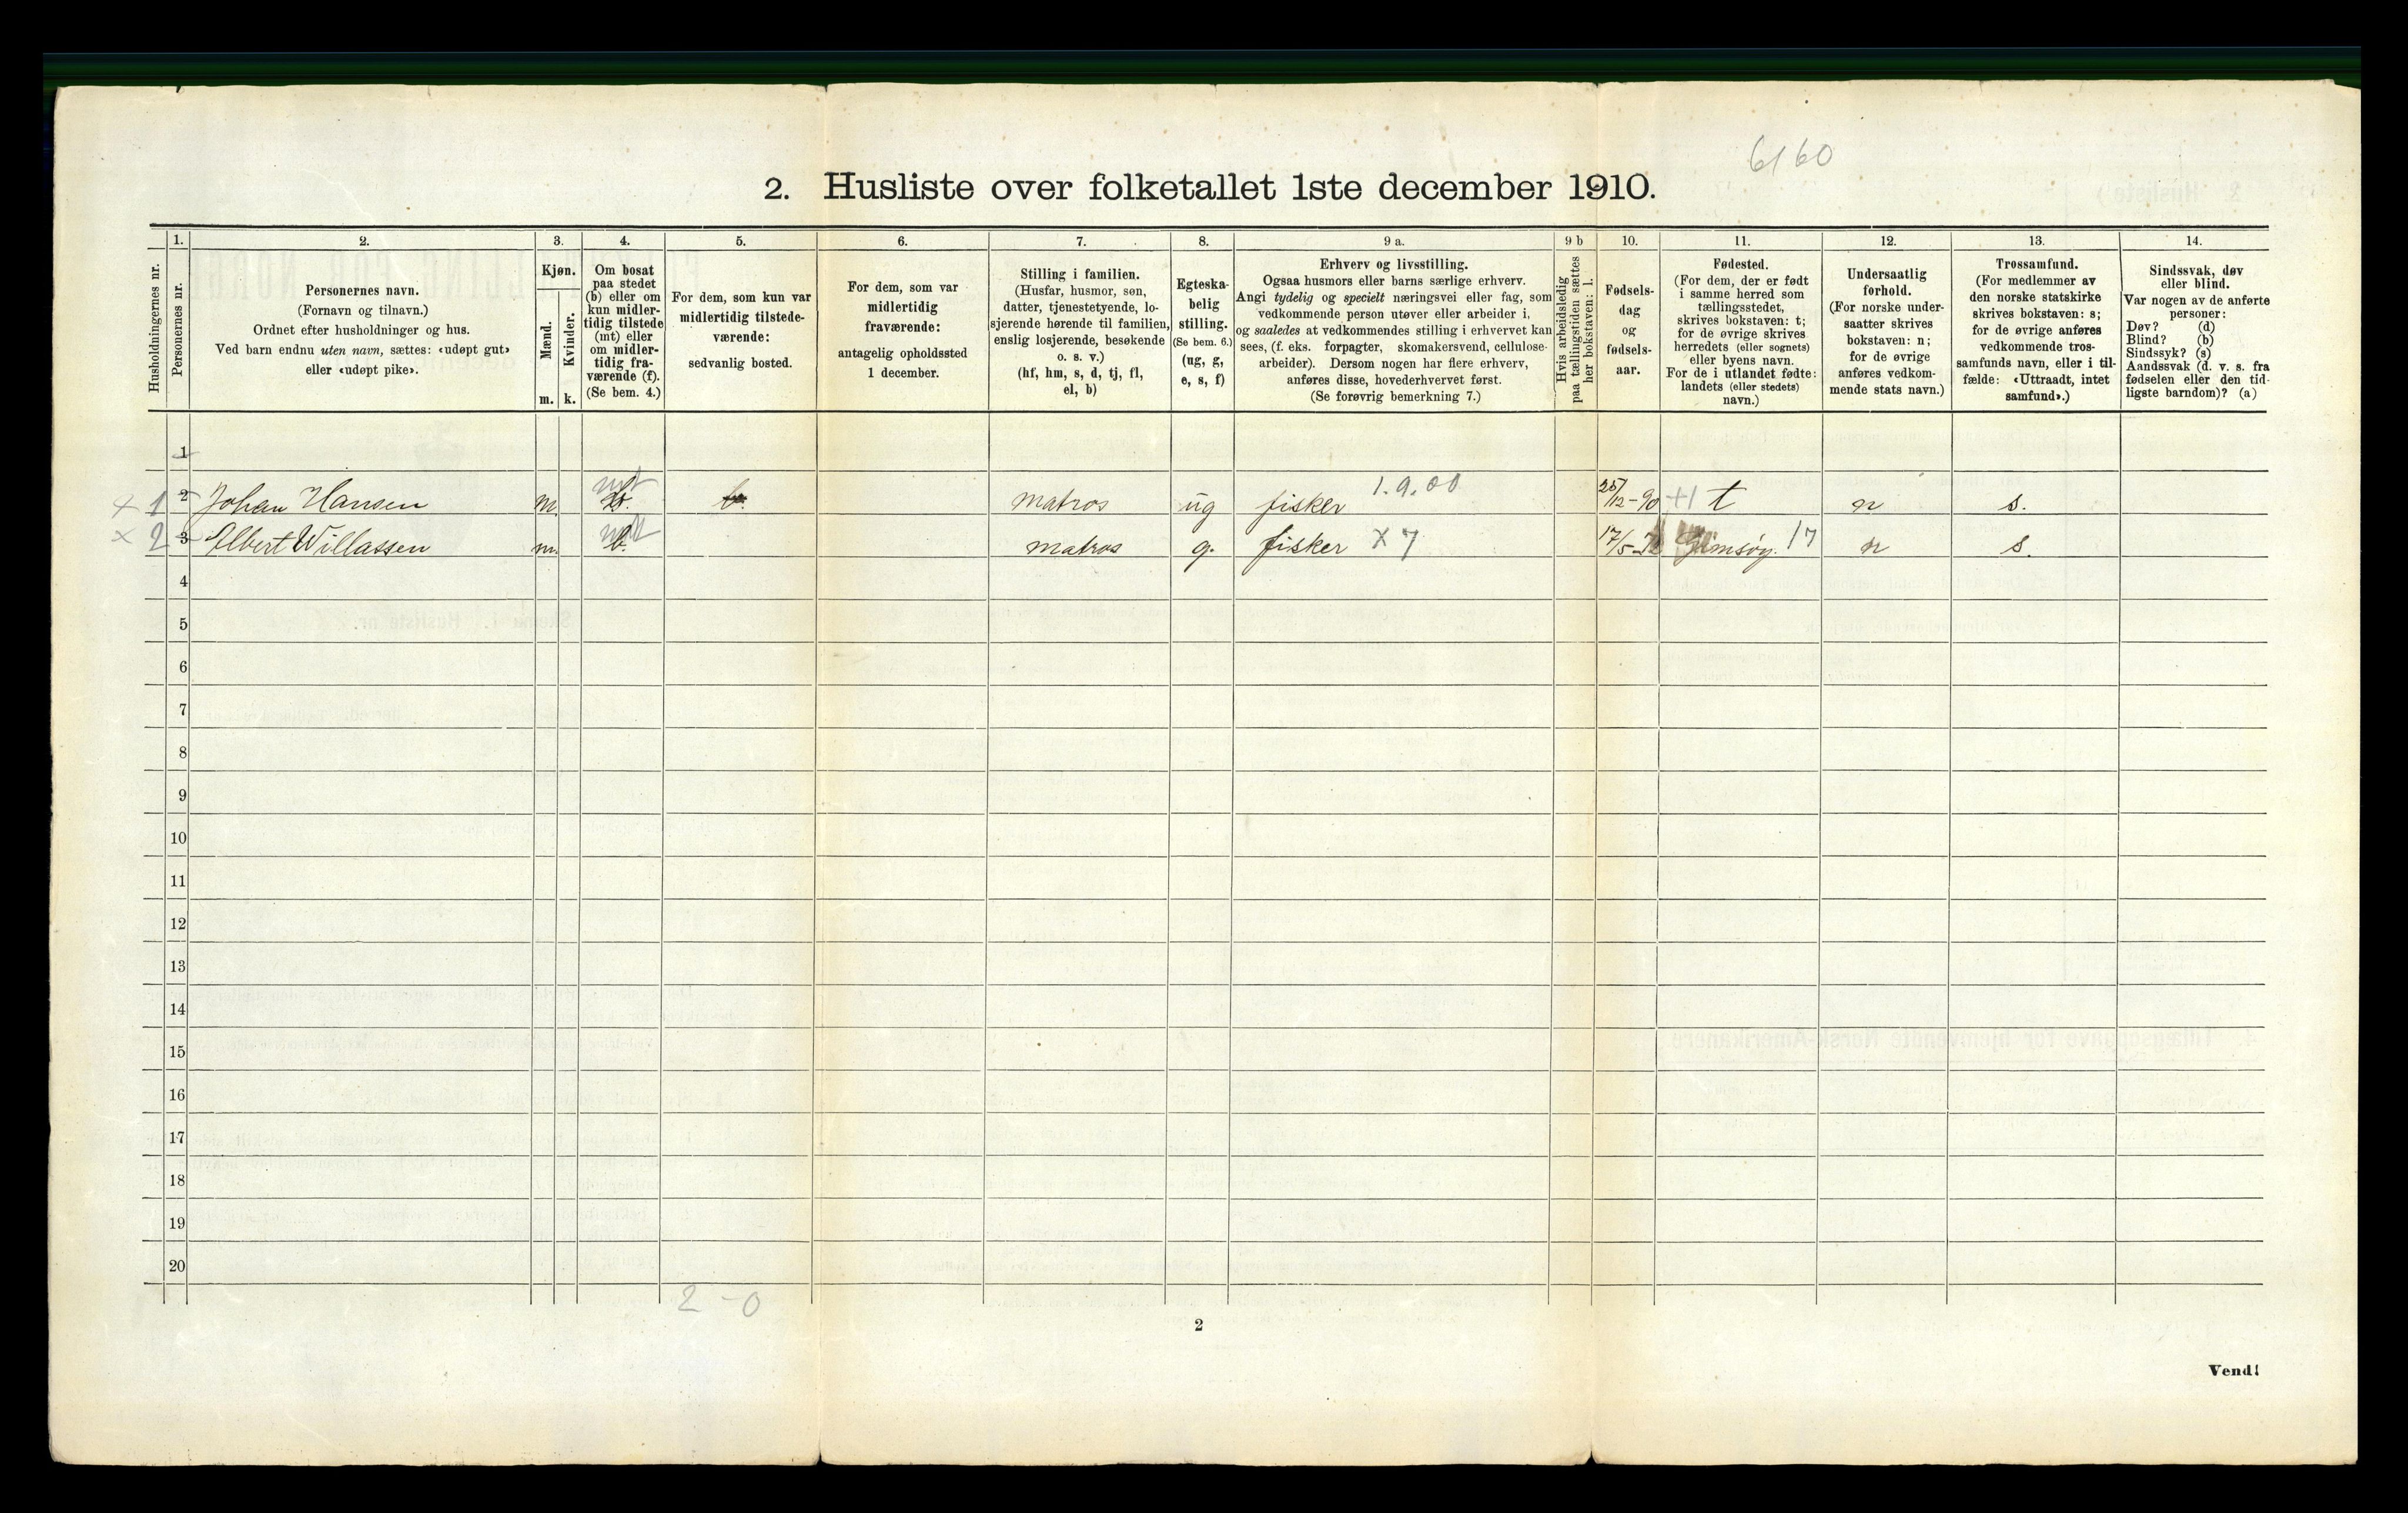 6160
2. Husliste over folketallet 1ste december 1910.
Husholdningernes nr.
1.
Personernes nr.
2.
Personernes navn.
(Fornavn og tilnavn.)
Ordnet efter husholdninger og hus.
Ved barn endnu uten navn, sættes: «udøpt gut»
eller «udøpt pike».
3.
Kjøn.
Mænd.
Kvinder.
m. k.
4.
Om bosat
paa stedet
(b) eller om
kun midler-
tidig tilstede
(mt) eller
om midler-
tidig fra-
værende (f).
(Se bem. 4.)
5.
For dem, som kun var
midlertidig tilstede-
værende:
sedvanlig bosted.
6.
For dem, som var
midlertidig
fraværende:
antagelig opholdssted
1 december.
7.
Stilling i familien.
(Husfar, husmor, søn,
datter, tjenestetyende, lo-
sjerende hørende til familien,
enslig losjerende, besøkende
o. s. v.)
(hf, hm, s, d, tj, fl,
el, b)
8.
Egteska-
belig
stilling.
(Se bem. 6.)
(ug, g,
e, s, f)
9 a.
Erhverv og livsstilling.
Ogsaa husmors eller barns særlige erhverv.
Angi tydelig og specielt næringsvei eller fag, som
vedkommende person utøver eller arbeider i,
og saaledes at vedkommendes stilling i erhvervet kan
sees, (f. eks. forpagter, skomakersvend, cellulose-
arbeider). Dersom nogen har flere erhverv,
anføres disse, hovederhvervet først.
(Se forøvrig bemerkning 7.)
9 b
Hvis arbeidsledig
paa tællingstiden sættes
her bokstaven: l.
10.
Fødsels-
dag
og
fødsels-
aar.
11.
Fødested.
(For dem, der er født
i samme herred som
tællingsstedet,
skrives bokstaven: t;
for de øvrige skrives
herredets (eller sognets)
eller byens navn.
For de i utlandet fødte:
landets (eller stedets)
navn.)
12.
Undersaatlig
forhold.
(For norske under-
saatter skrives
bokstaven: n;
for de øvrige
anføres vedkom-
mende stats navn.)
13.
Trossamfund.
(For medlemmer av
den norske statskirke
skrives bokstaven: s;
for de øvrige anføres
vedkommende tros-
samfunds navn, eller i til-
fælde: «Uttraadt, intet
samfund».)
14.
Sindssvak, døv
eller blind.
Var nogen av de anførte
personer:
Døv? (d)
Blind? (b)
Sindssyk? (s)
Aandssvak (d. v. s. fra
fødselen eller den tid-
ligste barndom)? (a)
1
+ 1 2 Johan Hansen m. mt b. b. matros ug fisker 1.9.00 25/12-90 +1 t n s.
× 2 3 Elbert Willassen m. mt b. matros g. fisker × 7 17/5- Gimsøy. 17 n s.
4
5
6
7
8
9
10
11
12
13
14
15
16
17
18
19
20
2 - 0
2
Vend!